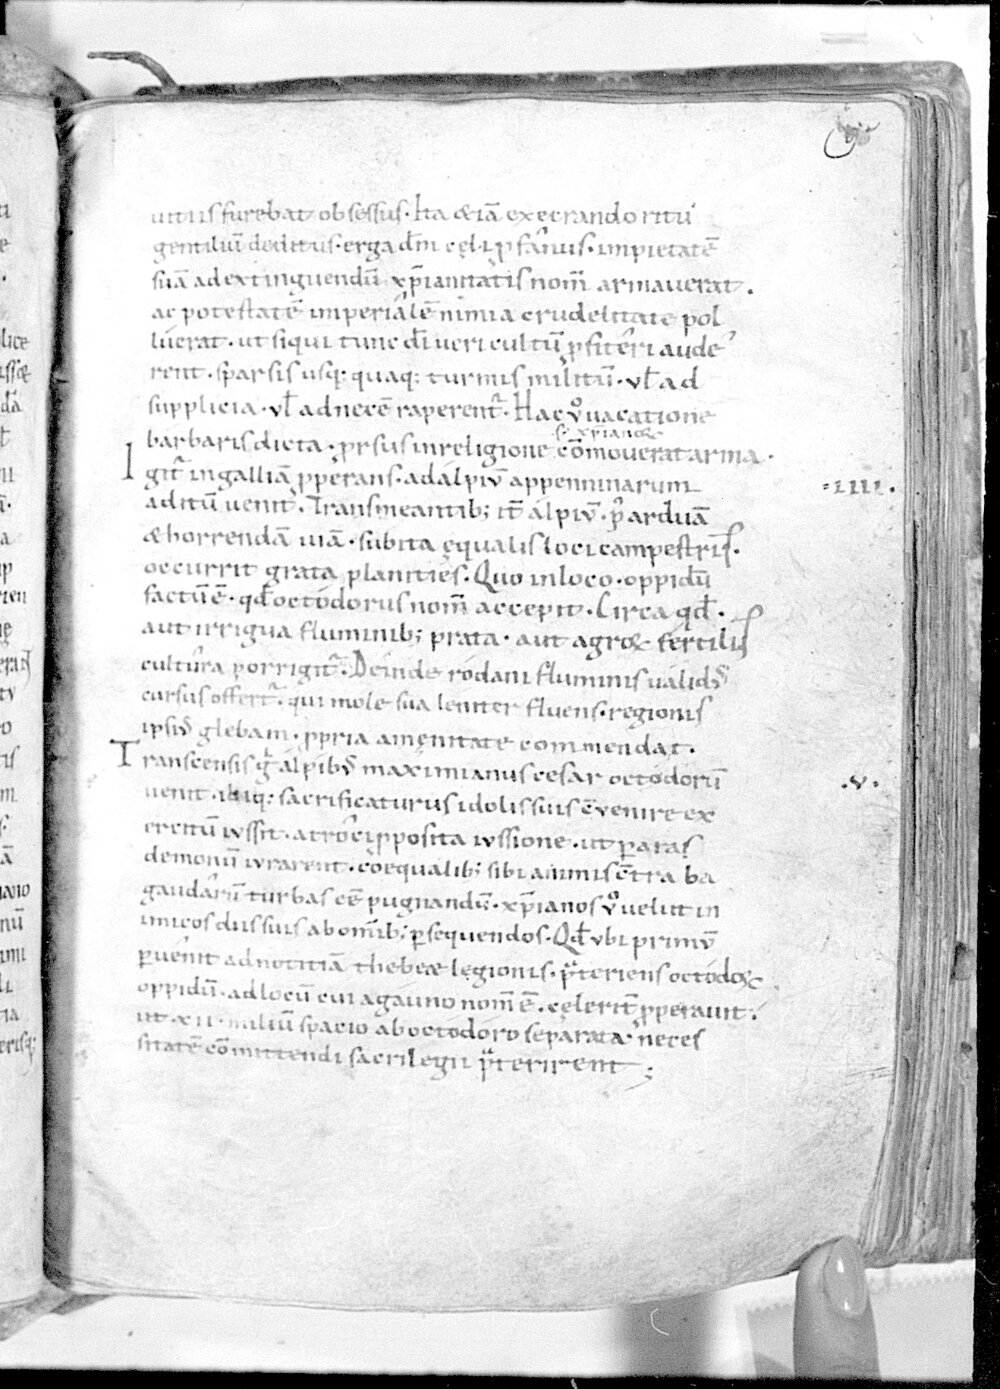 uitiis furebat obsessus. Ita &iā execrando ritu
gentiliū deditus. erga dm̄ cęli pfanus. impietatē
suā ad extinguendū xp̄ianitatis nom̄ armauerat.
ac potestatē imperialē nimia crudelitate pol
luerat. ut siqui tunc dī ueri cultū pfiteri aude
rent. sparsis usq; quaq; turmis militū. vł ad
supplicia. vł ad necē raperent᷑. Hac v̊ uacatione
barbaris dicta. prsus in religione cōmouerat arma.
s. xp̄ianoꝝ
Igit᷑ in galliā pperans. ad alpiū appenninarum
.IIII.
aditū uenit. Transmeantib; it̄ alpiū. p arduā
& horrendā uiā. subita ęqualis loci campestris.
occurrit grata planities. Quo in loco. oppidū
factū ē. qđ octodorus nom̄ accepit. Circa qđ.
aut irrigua fluminib; prata. aut agroꝝ fertilis
cultura porrigit᷑. Deinde rodani fluminis ualidꝰ
cursus offert᷑. qui mole sua leniter fluens. regionis
ipsiꝰ glebam. ppria amęnitate commendat.
Transcensis g̊ alpibꝰ maximianus cesar octodorū
.V.
uenit. ibiq; sacrificaturus idolis suis c̄uenire ex
ercitū iussit. atroci pposita iussione. ut p aras
demonū iurarent. coequalib; sibi animis c̄tra ba
gaudarū turbas eē pugnandū. xp̄ianos v̊ uelut in
imicos diis suis ab om̄ib; psequendos. Qđ ubi primū
puenit ad notitiā thebeæ legionis. pteriens octodoꝝ
oppidū. ad locū cui agauno nom̄ ē. celerit̄ pperauit.
ut XII. miliū spacio ab octodoro separata neces
sitatē cōmittendi sacrilegii pterirent;